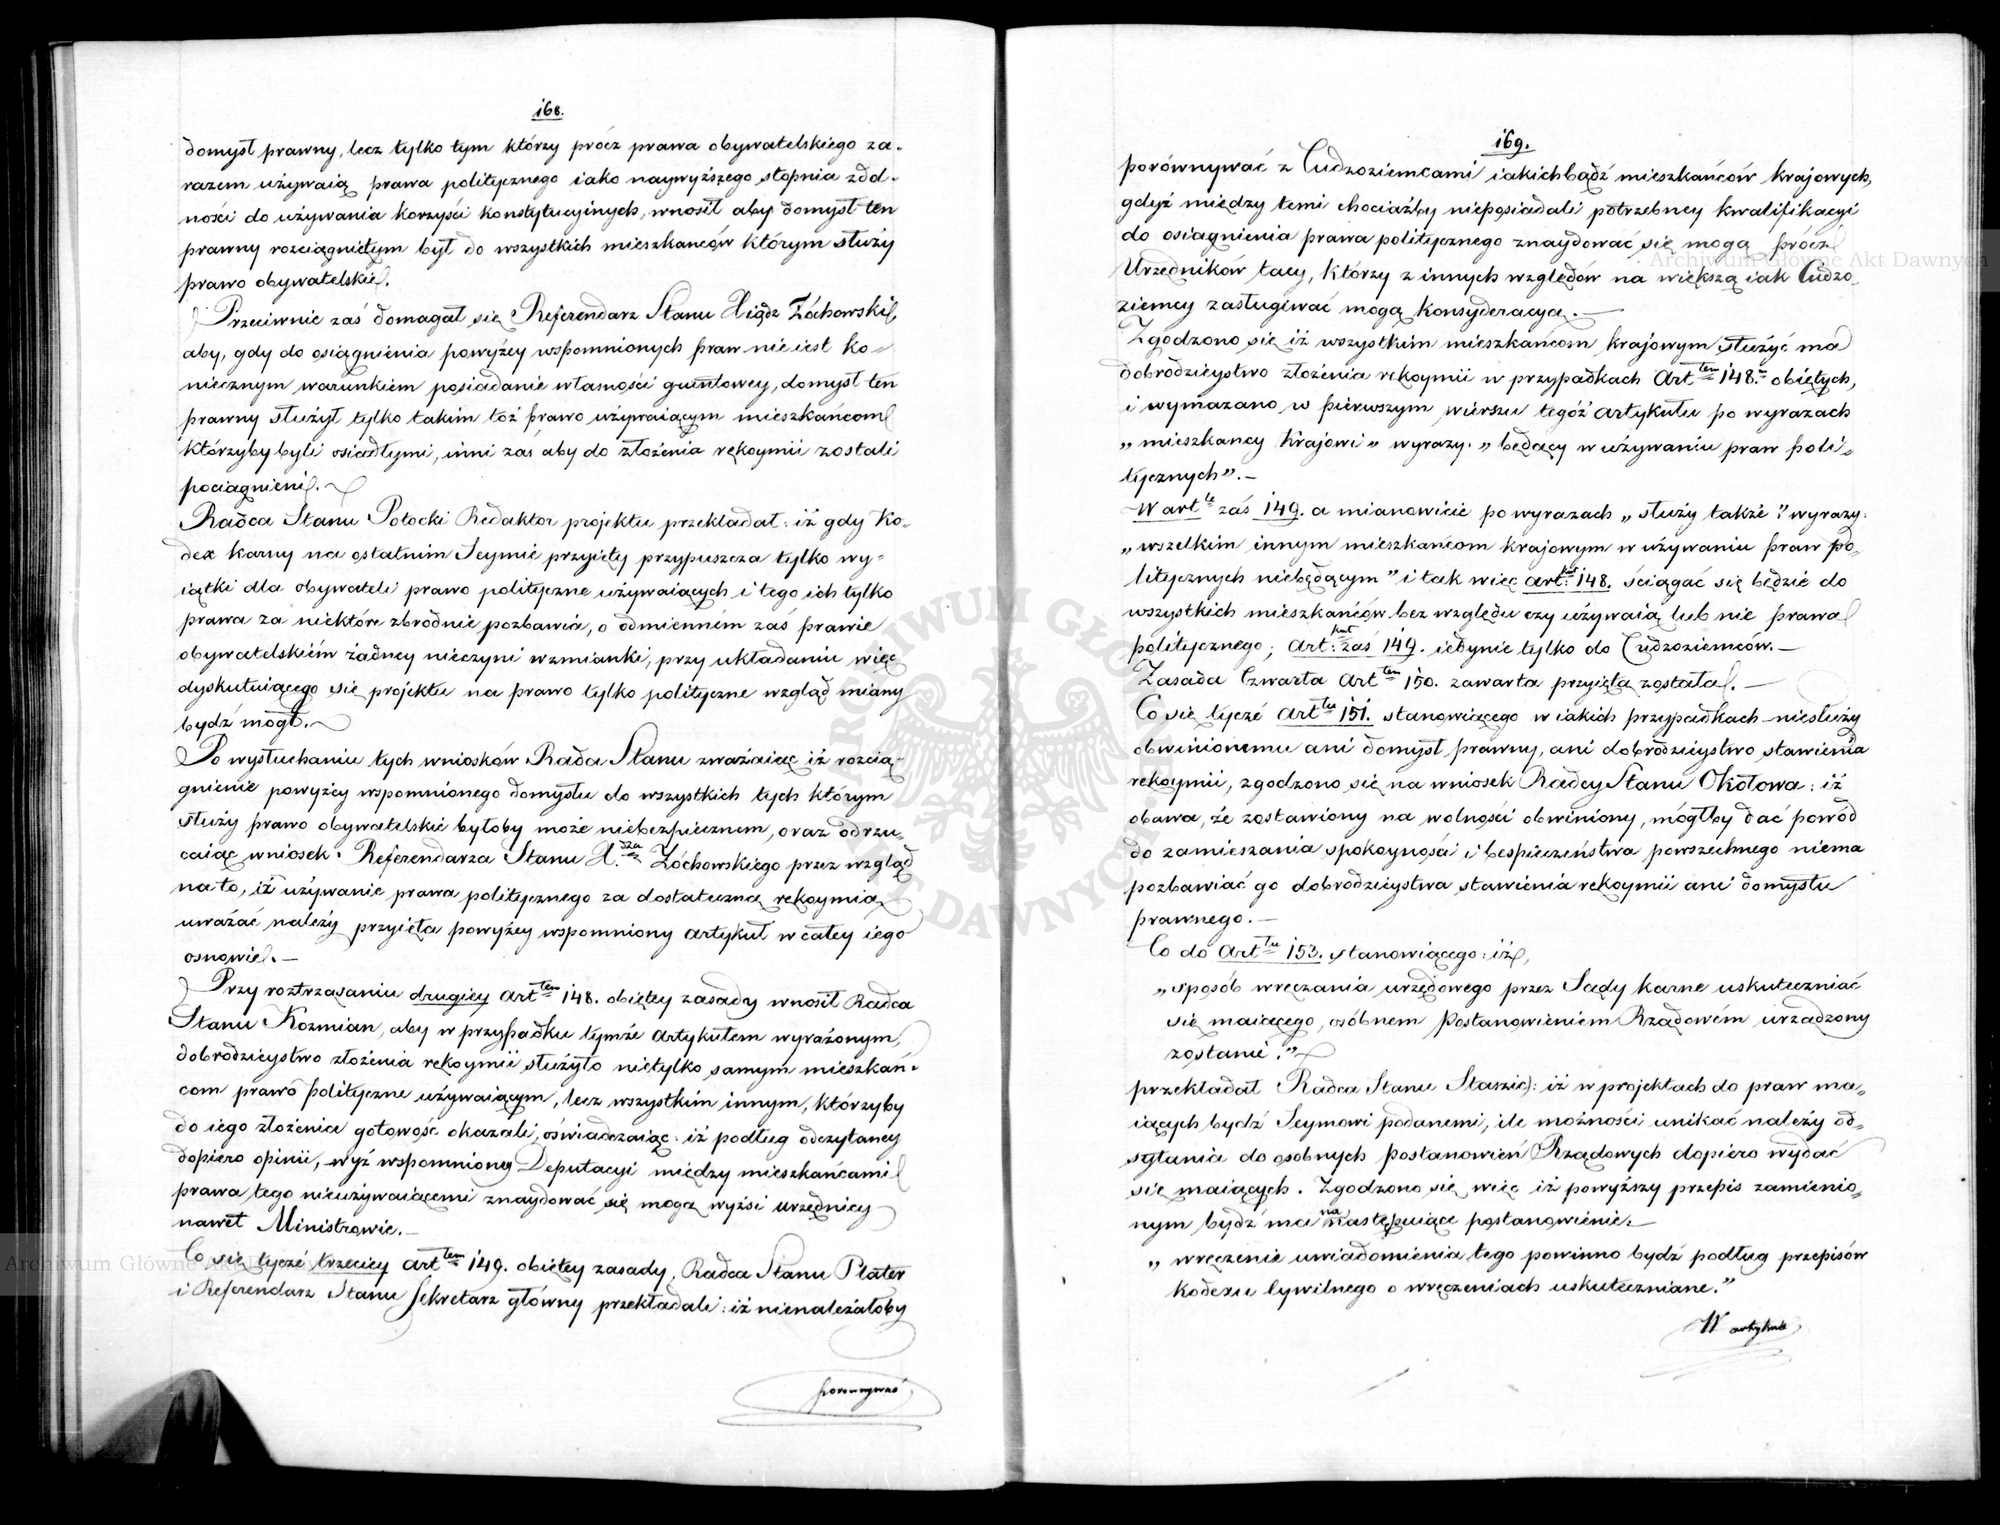 168.
domysł prawny, lecz tylko tym którzy prócz prawa obywatelskiego za-
razem używaią prawa politycznego iako naywyższego stopnia zdol-
ności do używania korzyści konstytucyinych, wnosił aby domysł ten
prawny rozciągniętym był do wszystkich mieszkańców którym służy
prawo obywatelskie.
Przeciwnie zaś domagał się Referendarz Stanu Xiądz Żóchowski,
aby, gdy do osiągnienia powyżey wspomnionych praw nie iest ko-
niecznym warunkiem posiadanie własności gruntowey, domysł ten
prawny służył tylko takim toż prawo używaiącym mieszkańcom
którzyby byli osiadłymi, inni zaś aby do złożenia rękoymii zostali
pociągnieni.
Radca Stanu Potocki Redaktor projektu przekładał: iż gdy Ko-
dex karny na ostatnim Seymie przyięty przypuszcza tylko wy-
iątki dla obywateli prawo polityczne używaiących i tego ich tylko
prawa za niektóre zbrodnie pozbawia, o odmienném zaś prawie
obywatelskiém żadney nieczyni wzmianki, przy układaniu więc
dyskutuiącego się projektu na prawo tylko polityczne wzgląd miany
bydź mógł.
Po wysłuchaniu tych wniosków Rada Stanu zważaiąc iż rozcią-
gnienie powyżey wspomnionego domysłu do wszystkich tych którym
służy prawo obywatelskie byłoby może niebezpiecznem, oraz odrzu-
caiąc wniosek Referendarza Stanu X.dza Żóchowskiego przez wzgląd
na to, iż używanie prawa politycznego za dostateczną rękoymią
uważać należy przyięła powyżey wspomniony artykuł w całey iego
osnowie.
Przy roztrząsaniu drugiey Art.tem 148. obiętey zasady wnosił Radca
Stanu Kozmian, aby w przypadku tymże Artykułem wyrażonym,
dobrodzieystwo złożenia rękoymii służyło nietylko samym mieszkań-
com prawo polityczne używaiącym, lecz wszystkim innym, którzyby
do iego złożenia gotowość okazali, oświadczaiąc: iż podług odczytaney
dopiero opinii, wyż wspomnioney Deputacyi między mieszkańcami
prawa tego nieużywaiącemi znaydować się mogą wyżsi urzędnicy
nawet Ministrowie.
Co się tycze trzeciey Art.tem 149. obiętey zasady, Radca Stanu Plater
i Referendarz Stanu Sekretarz główny przekładali: iż nienależałoby
porównywać
169.
porównywać z Cudzoziemcami iakichbądź mieszkańców krajowych,
gdyż między temi chociażby nieposiadali potrzebney kwalifikacyi
do osiągnienia prawa politycznego znaydować się mogą prócz
Urzędników tacy, którzy z innych względów na większą iak Cudzo-
ziemcy zasługiwać mogą konsyderacyą.
Zgodzono się iż wszystkim mieszkańcom krajowym służyć ma
dobrodzieystwo złożenia rękoymii w przypadkach Art.tem 148. obiętych,
i wymazano w pierwszym wierszu tegóż artykułu po wyrazach
„ mieszkancy krajowi " wyrazy: „ będący w używaniu praw poli-
tycznych".
W art.le zaś 149. a mianowicie po wyrazach „ służy także " wyrazy:
„ wszelkim innym mieszkańcom krajowym w używaniu praw po-
litycznych niebędącym" i tak więc art.kuł 148. ściągać się będzie do
wszystkich mieszkańców bez względu czy używaią lub nie prawa
politycznego; Art.kuł zaś 149. iedynie tylko do Cudzoziemców.
Zasada Czwarta Art.tem 150. zawarta przyięta została.
Co się tycze Art.łu 151. stanowiącego w iakich przypadkach niesłuży
obwinionemu ani domysł prawny, ani dobrodzieystwo stawienia
rękoymii, zgodzono się na wniosek Radcy Stanu Okołowa: iż
obawa, że zostawiony na wolności obwiniony, mógłby dać powód
do zamieszania spokoyności i bespieczeństwa powszechnego niema
pozbawiać go dobrodzieystwa stawienia rękoymii ani domysłu
prawnego.
Co do Art.łu 153. stanowiącego: iż,
„ sposób wręczania urzędowego przez Sądy karne uskuteczniać
się maiącego, osóbnem Postanowieniem Rządowém urządzony
zostanie."
przekładał Radca Stanu Staszic: iż w projektach do praw ma-
iących bydź Seymowi podanemi, ile możności unikać należy od-
sełania do osobnych postanowień Rządowych dopiero wydać
się maiących. Zgodzono się więc iż powyższy przepis zamienio-
nym bydź ma na następuiące postanowienie:
„ wręczenie uwiadomienia tego powinno bydź podług przepisów
kodexu Cywilnego o wręczeniach uskuteczniane."
W artykule
Archiwum Główne Akt Dawnych
Archiwum Główne Akt Dawnych
ARCHIWUM GŁÓWNE AKT DAWNYCH